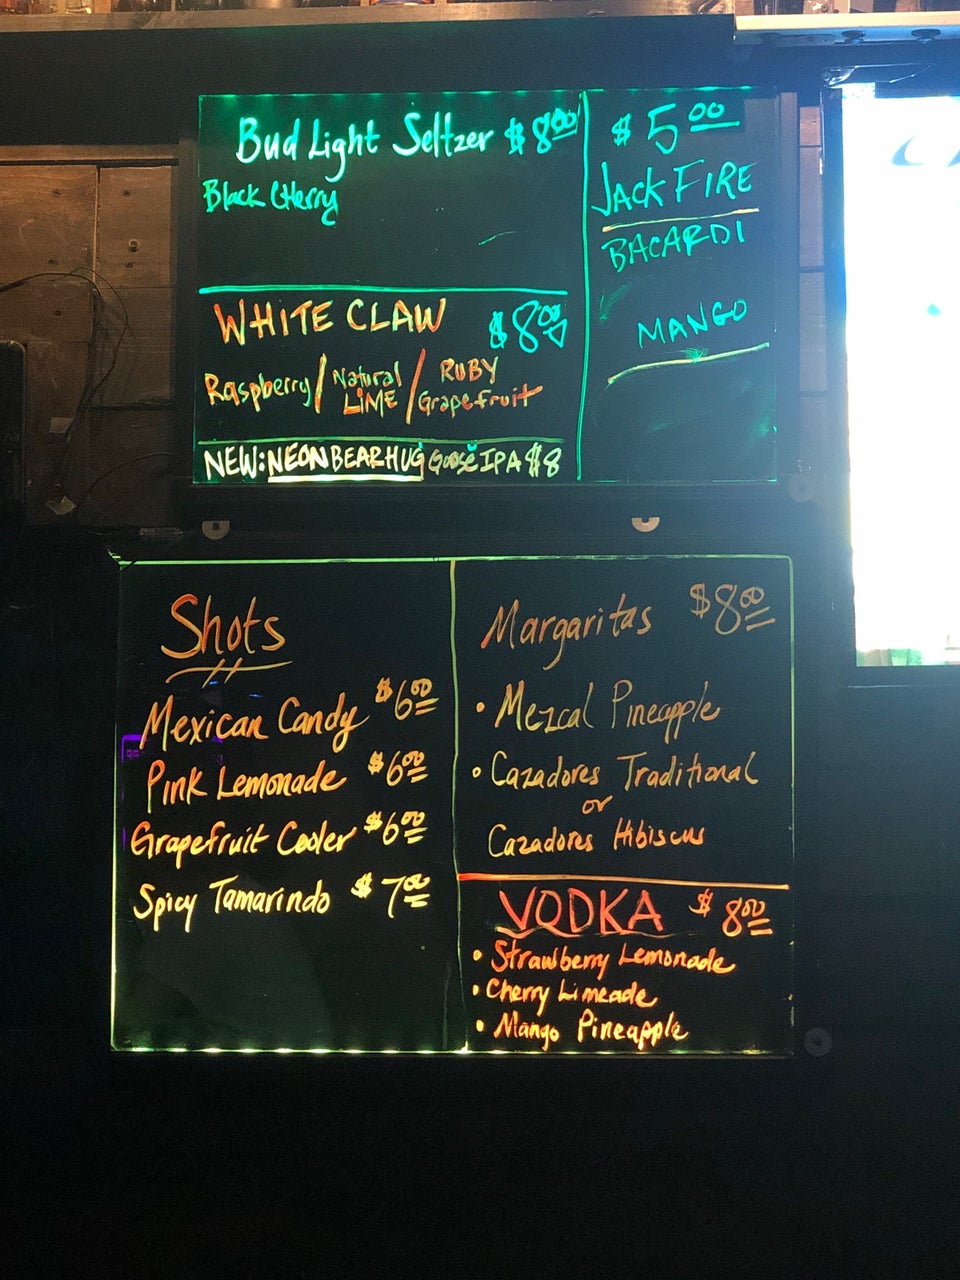 Bud Light Seltzer $8.00
Black Cherry
WHITE CLAW $8.00
Raspberry / Natural LIME / RUBY Grapefruit
NEW: NEON BEAR HUG Goose IPA $8
$5.00
JACK FIRE
BACARDI
MANGO
Shots
Mexican Candy $6.00
Pink Lemonade $6.00
Grapefruit Cooler $6.00
Spicy Tamarindo $7.00
Margaritas $8.00
• Mezcal Pineapple
• Cazadores Traditional
or
Cazadores Hibiscus
VODKA $8.00
• Strawberry Lemonade
• Cherry Limeade
• Mango Pineapple